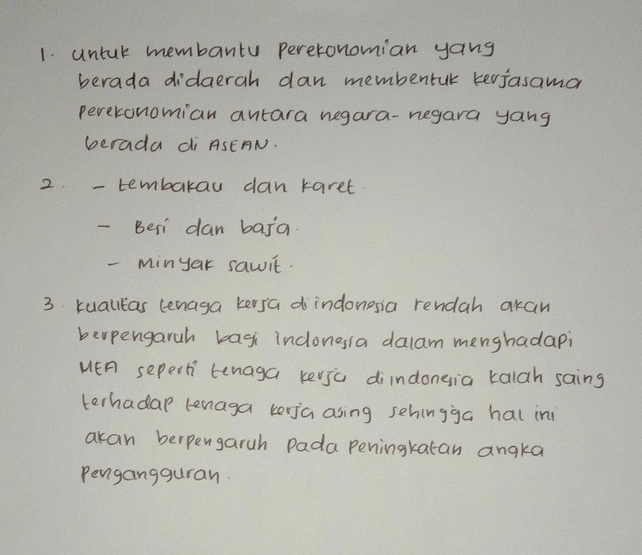 1. untuk membantu perekonomian yang
berada didaerah dan membentuk kerjasama
perekonomian antara negara-negara yang
berada di ASEAN.
2. - tembakau dan karet.
- Besi dan baja.
- Minyak sawit.
3. kualitas tenaga kerja di indonesia rendah akan
berpengaruh bagi indonesia dalam menghadapi
MEA seperti tenaga kerja di indonesia kalah saing
terhadap tenaga kerja asing sehingga hal ini
akan berpengaruh pada peningkatan angka
pengangguran.